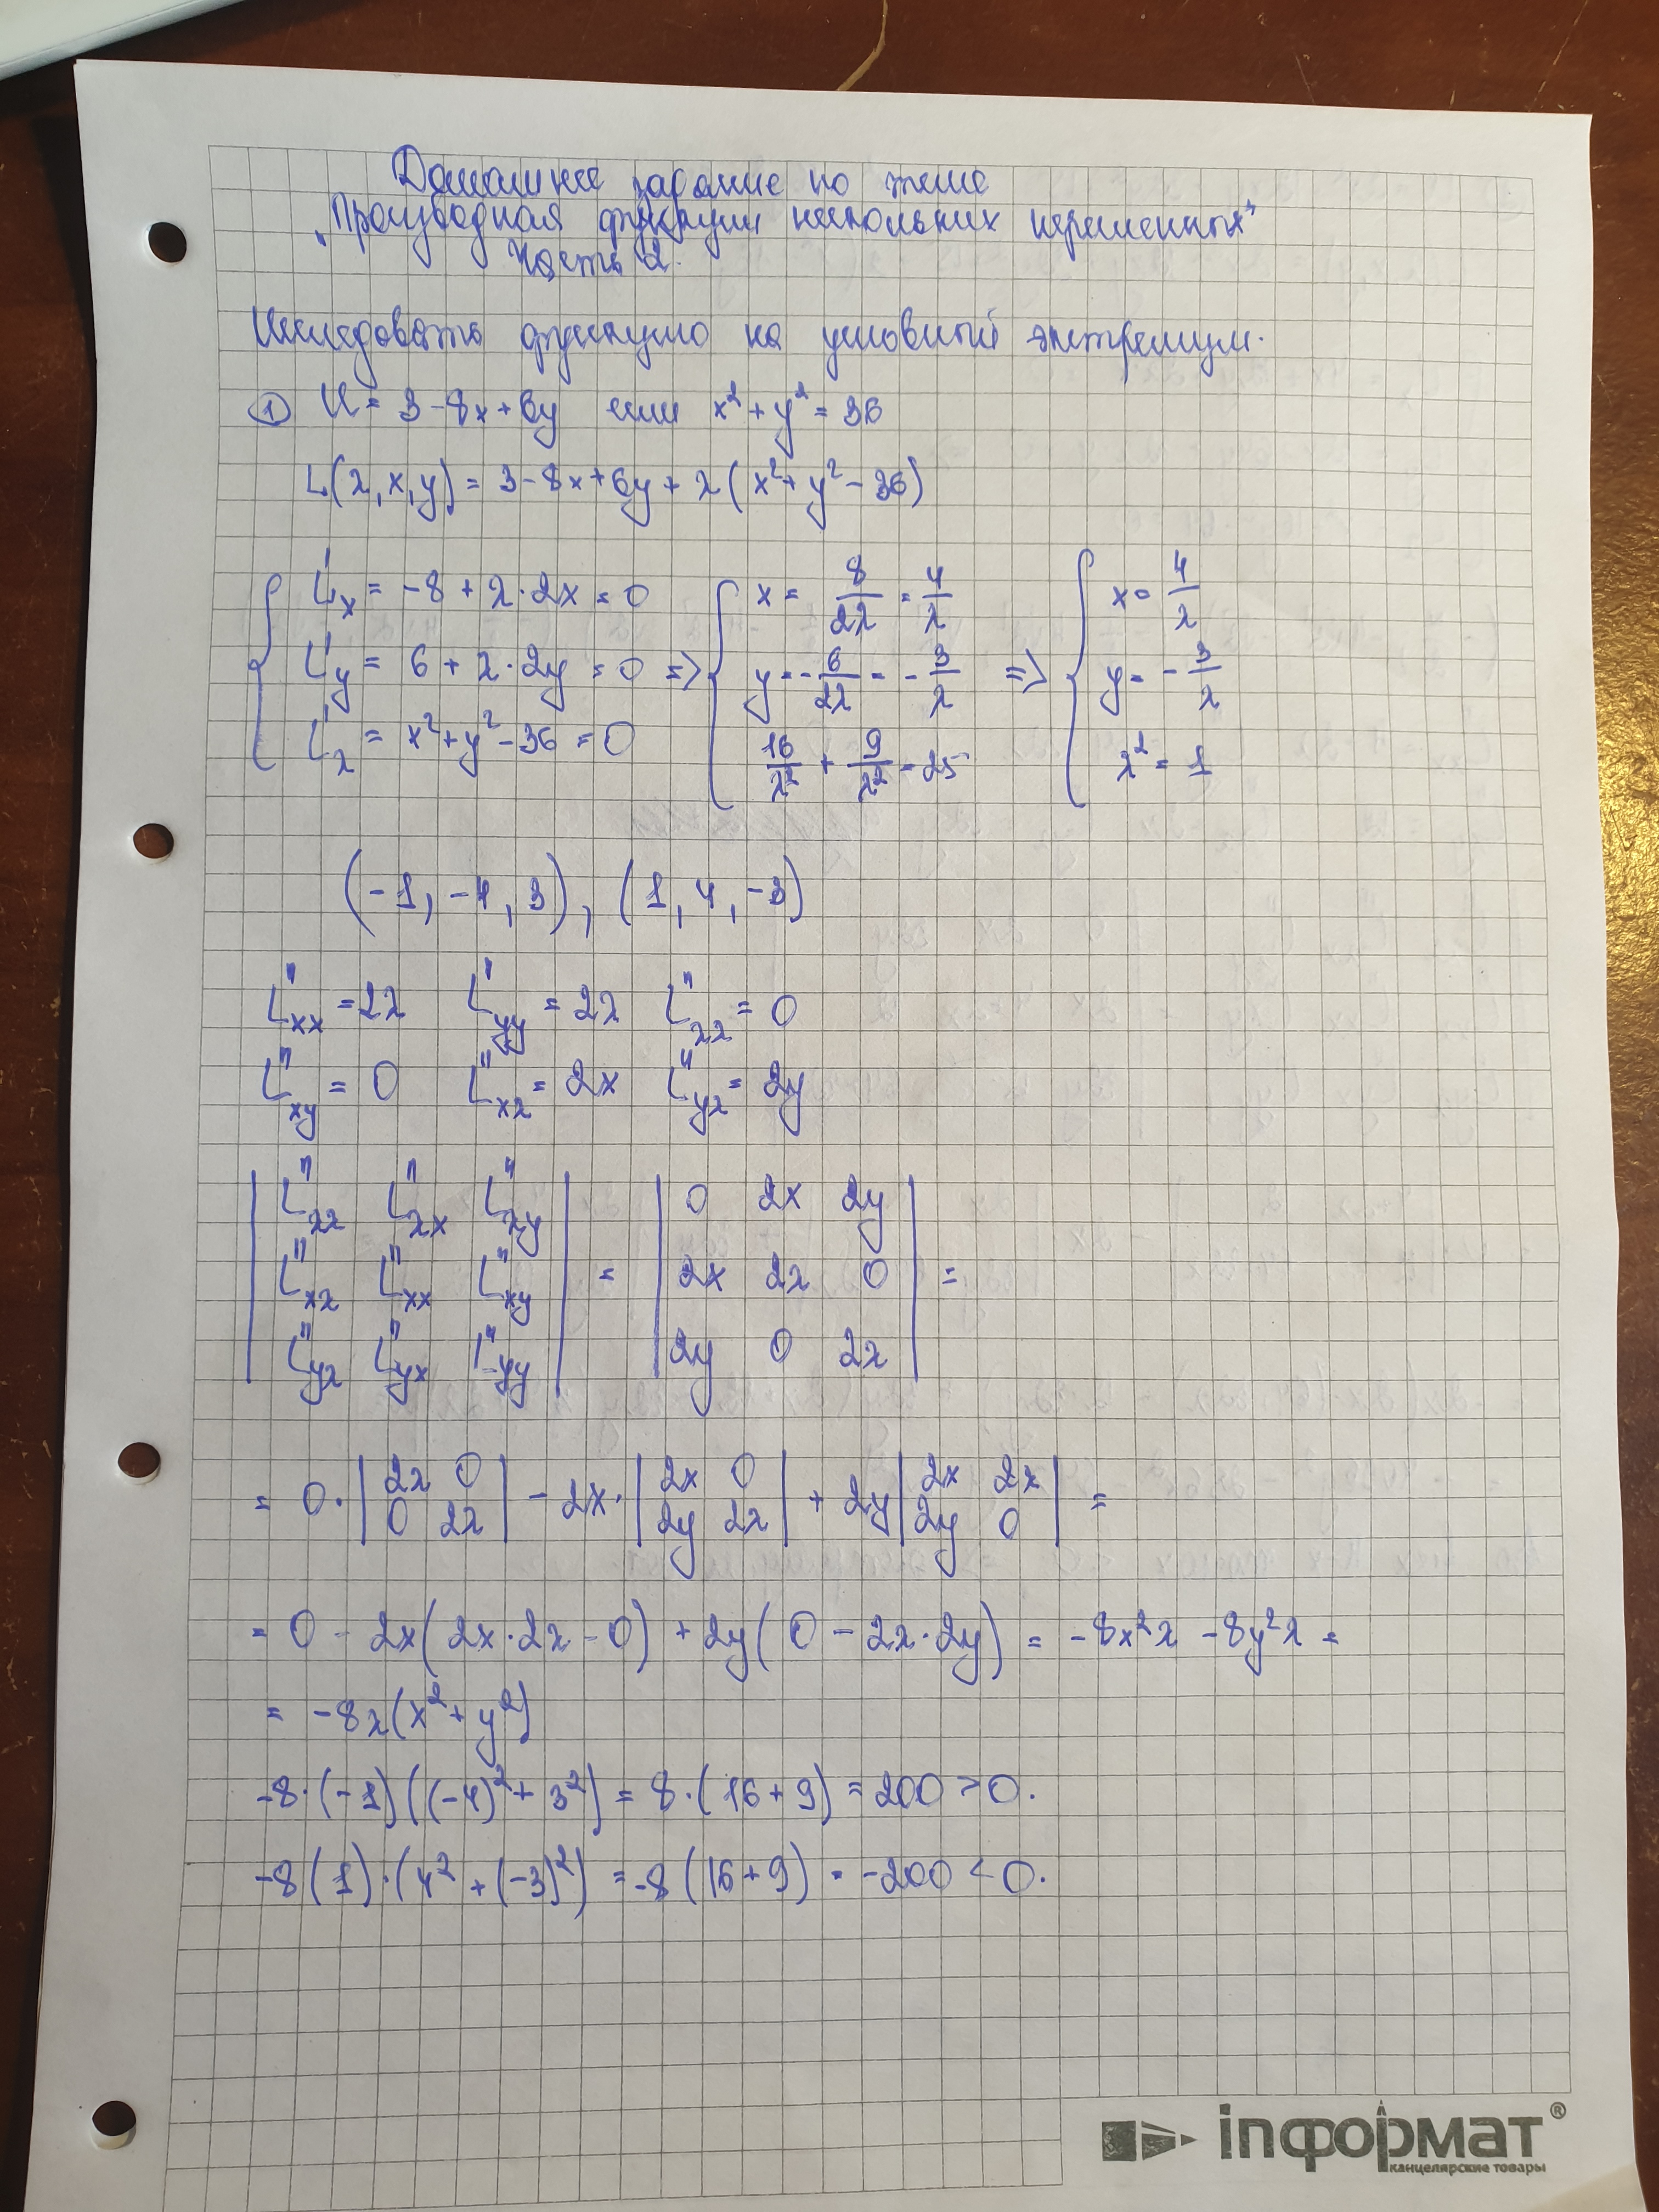 Домашнее задание по теме
„Производная функции нескольких переменных"
Часть 2.
Исследовать функцию на условный экстремум.
① U = 3 - 8x + 6y если x² + y² = 36
L(λ, x, y) = 3 - 8x + 6y + λ(x² + y² - 36)
{ L'x = -8 + λ·2x = 0 { x = 8/2λ = 4/λ { x = 4/λ
L'y = 6 + λ·2y = 0 => y = -6/2λ = -3/λ => y = -3/λ
L'λ = x² + y² - 36 = 0 16/λ² + 9/λ² = 25 λ² = 1
(-1, -4, 3), (1, 4, -3)
L"xx = 2λ L"yy = 2λ L"λλ = 0
L"xy = 0 L"xλ = 2x L"yλ = 2y
| L"λλ L"λx L"λy | | 0 2x 2y |
| L"xλ L"xx L"xy | = | 2x 2λ 0 | =
| L"yλ L"yx L"yy | | 2y 0 2λ |
= 0·|2λ 0| - 2x·|2x 0| + 2y|2x 2λ| =
|0 2λ| |2y 2λ| |2y 0|
= 0 - 2x(2x·2λ - 0) + 2y(0 - 2λ·2y) = -8x²λ - 8y²λ =
= -8λ(x² + y²)
-8·(-1)((-4)² + 3²) = 8·(16 + 9) = 200 > 0.
-8(1)·(4² + (-3)²) = -8(16 + 9) = -200 < 0.
inформат®
канцелярские товары